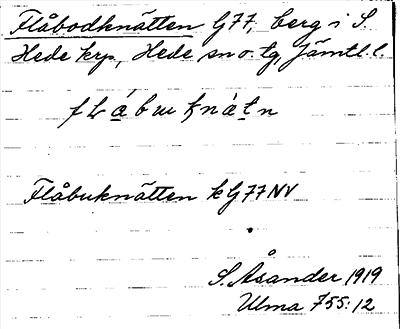 Flåbodknätten G77, berg i S.
Hede krp, Hede sn o. tg, Jämtl. l.
Flåbuknätten k G77NV
S. Åsander 1919
Ulma 755:12